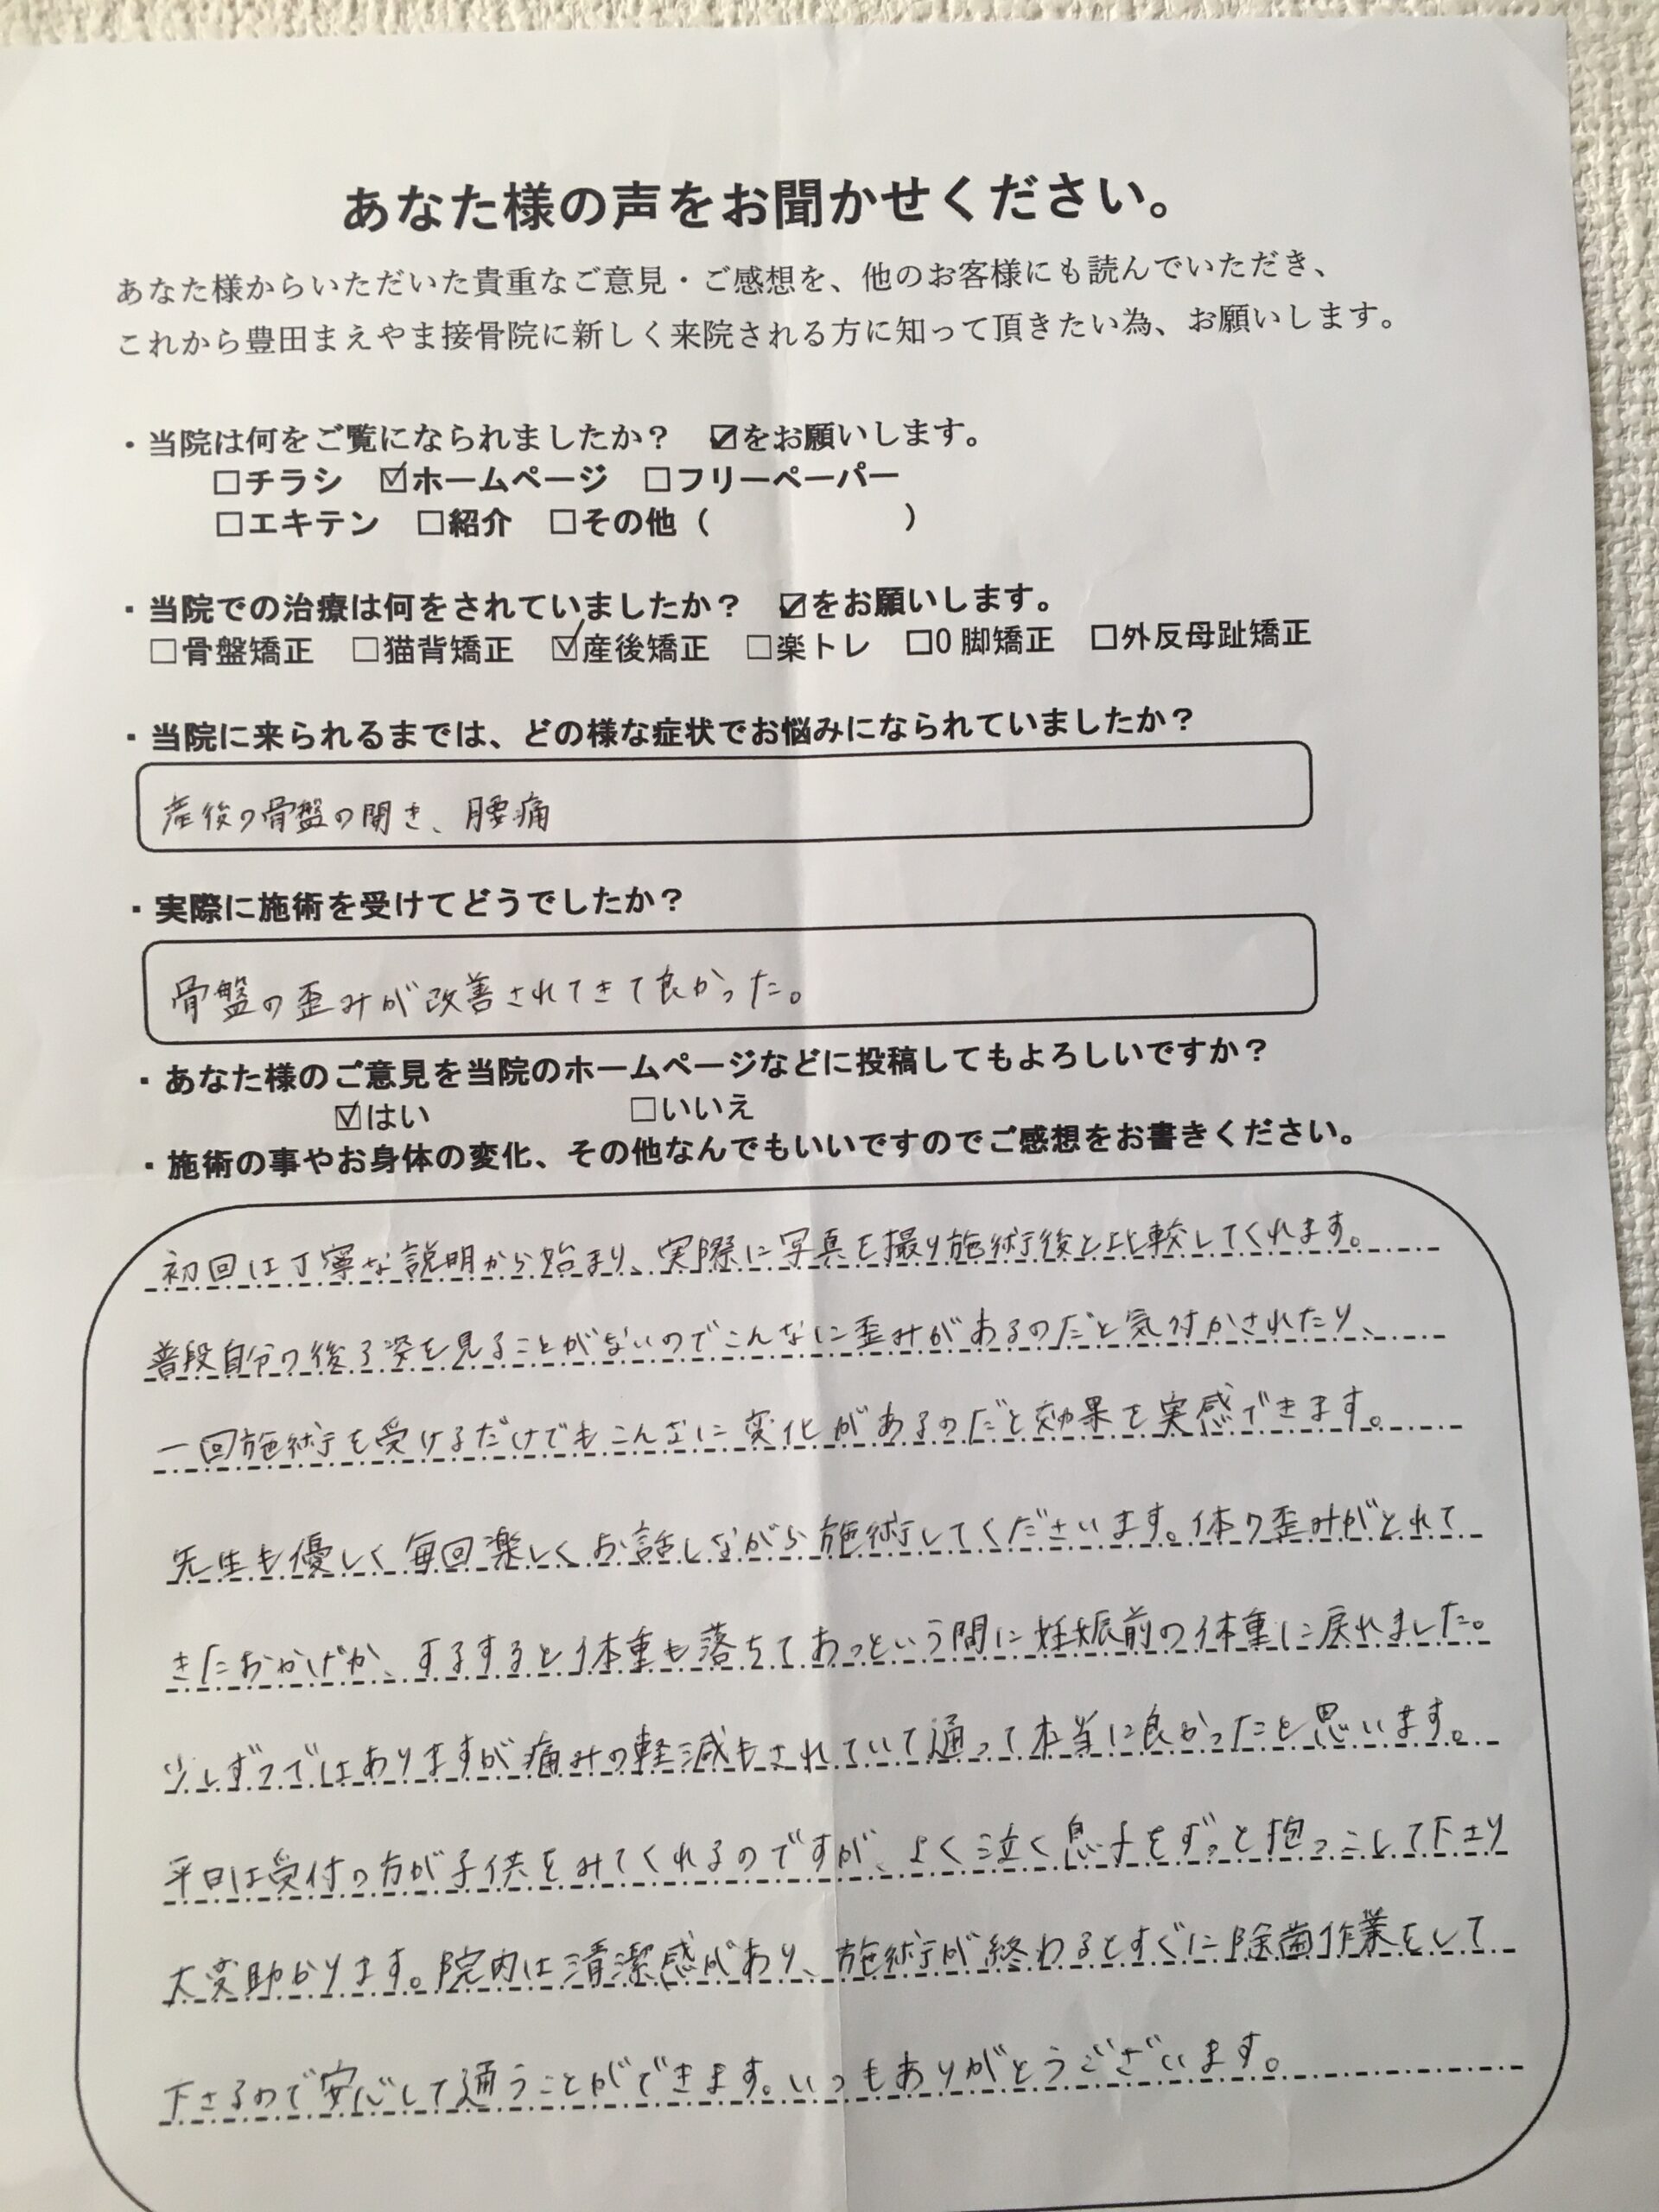 あなた様の声をお聞かせください。
あなた様からいただいた貴重なご意見・ご感想を、他のお客様にも読んでいただき、
これから豊田まえやま接骨院に新しく来院される方に知って頂きたい為、お願いします。
・当院は何をご覧になられましたか？ ☑をお願いします。
□チラシ ☑ホームページ □フリーペーパー
□エキテン □紹介 □その他（ ）
・当院での治療は何をされていましたか？ ☑をお願いします。
□骨盤矯正 □猫背矯正 ☑産後矯正 □楽トレ □O脚矯正 □外反母趾矯正
・当院に来られるまでは、どの様な症状でお悩みになられていましたか？
産後の骨盤の開き、腰痛
・実際に施術を受けてどうでしたか？
骨盤の歪みが改善されてきて良かった。
・あなた様のご意見を当院のホームページなどに投稿してもよろしいですか？
☑はい □いいえ
・施術の事やお身体の変化、その他なんでもいいですのでご感想をお書きください。
初回は丁寧な説明から始まり、実際に写真を撮り施術後と比較してくれます。
普段自分の後ろ姿を見ることがないのでこんなに歪みがあるのだと気付かされたり、
一回施術を受けるだけでもこんなに変化があるのだと効果を実感できます。
先生も優しく毎回楽しくお話しながら施術してくださいます。体の歪みがとれて
きたおかげか、するすると体重も落ちてあっという間に妊娠前の体重に戻れました。
少しずつではありますが痛みの軽減もされていて通って本当に良かったと思います。
平日は受付の方が子供をみてくれるのですが、よく泣く息子をずっと抱っこして下さり
大変助かります。院内は清潔感があり、施術が終わるとすぐに除菌作業をして
下さるので安心して通うことができます。いつもありがとうございます。